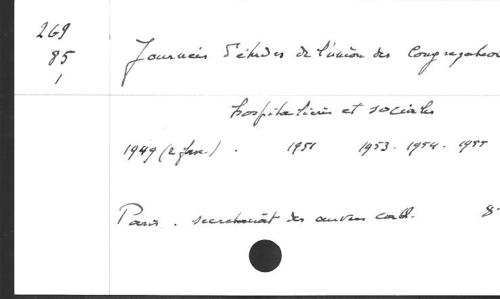 269
85
1
Journées d'études de l'union des Congrégations
hospitalières et sociales
1949 (2 fasc.) . 1951 1953 - 1954 - 1955
Paris . secrétariat des œuvres cath. 8-